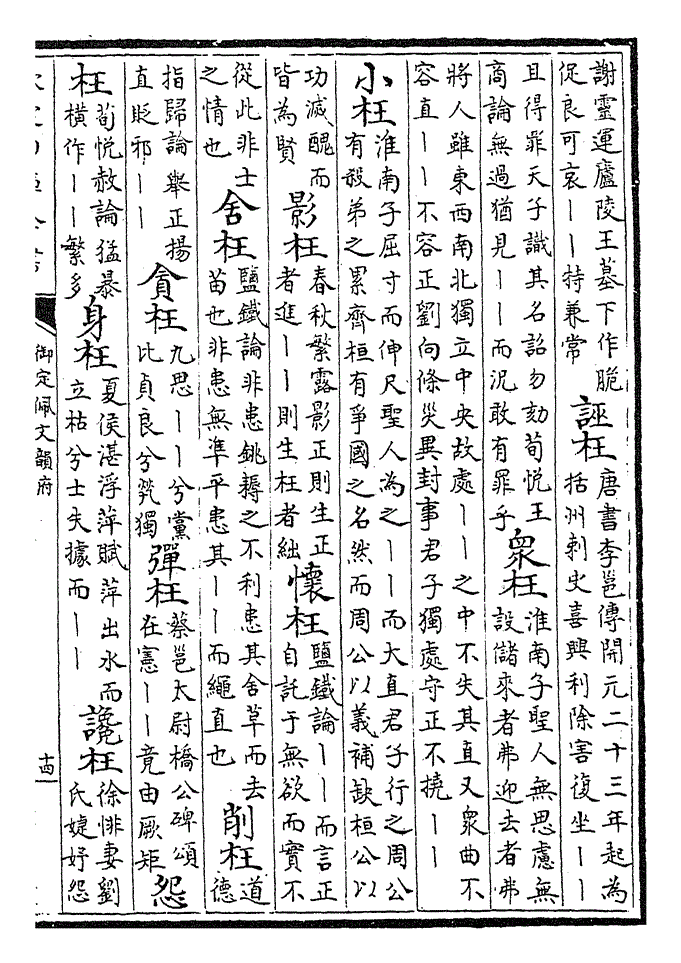 謝靈運廬陵王墓下作脆
促良可哀丨丨持兼常
誣枉
唐書李邕傳開元二十三年起為
括州刺史喜興利除害復坐丨丨
且得罪天子識其名詔勿劾荀悅王
商論無過猶見丨丨而況敢有罪乎
衆枉
淮南子聖人無思慮無
設儲來者弗迎去者弗
將人雖東西南北獨立中央故處丨丨之中不失其直又衆曲不
容直丨丨不容正劉向條災異封事君子獨處守正不撓丨丨
小枉
淮南子屈寸而伸尺聖人為之丨丨而大直君子行之周公
有殺弟之累齊桓有爭國之名然而周公以義補缺桓公以
功滅醜而
皆為賢
影枉
春秋繁露影正則生正
者進丨丨則生枉者絀
懷枉
鹽鐵論丨丨而言正
自託于無欲而實不
從此非士
之情也
舍枉
鹽鐵論非患銚耨之不利患其舍草而去
苗也非患無準平患其丨丨而繩直也
削枉
道德
指歸論舉正揚
直貶邪丨丨
貪枉
九思丨丨兮黨
比貞良兮煢獨
彈枉
蔡邕太尉橋公碑頌
在憲丨丨竟由厥矩
怨
枉
荀悅赦論猛暴
橫作丨丨繁多
身枉
夏侯湛浮萍賦萍出水而
立枯兮士失據而丨丨
讒枉
徐悱妻劉
氏婕妤怨
御定佩文韻府
十四